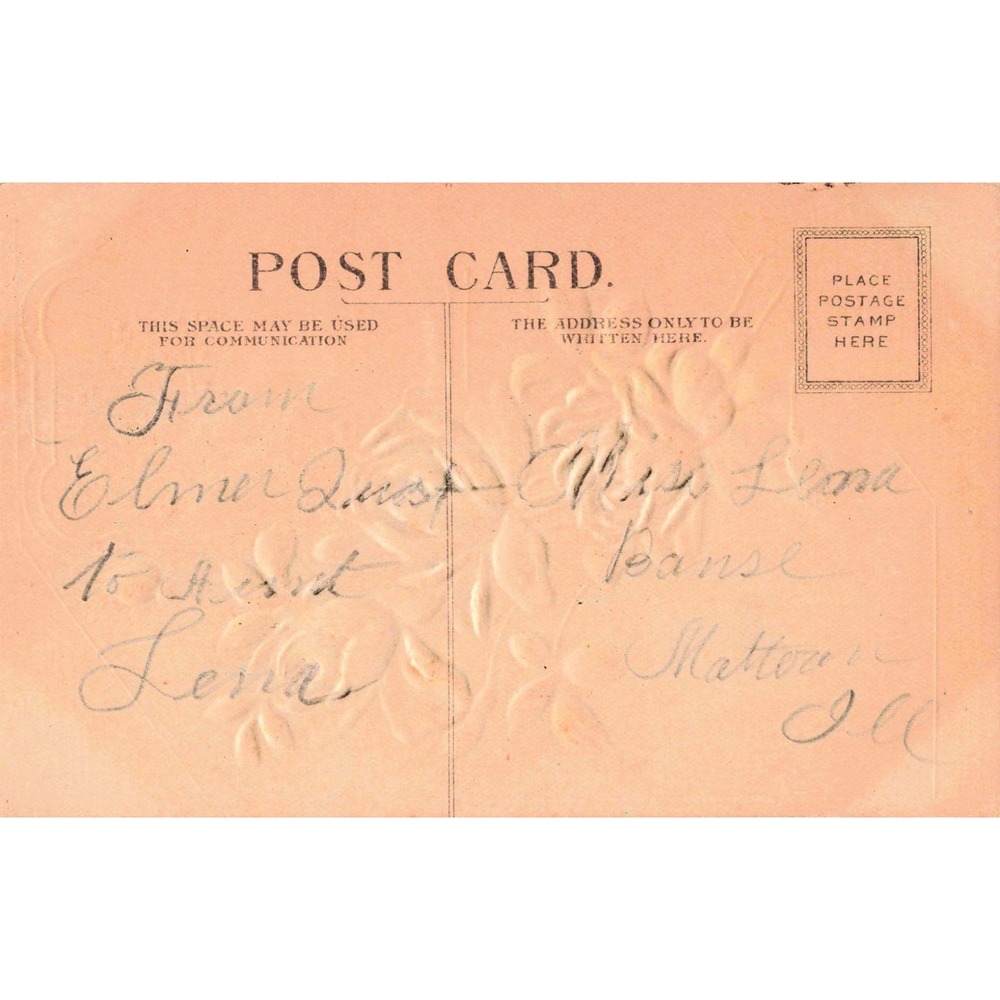 POST CARD.
THIS SPACE MAY BE USED
FOR COMMUNICATION
THE ADDRESS ONLY TO BE
WRITTEN HERE.
PLACE
POSTAGE
STAMP
HERE
From
Elmer
to
Lena
Miss Lena
Banse
Mattoon
Ill